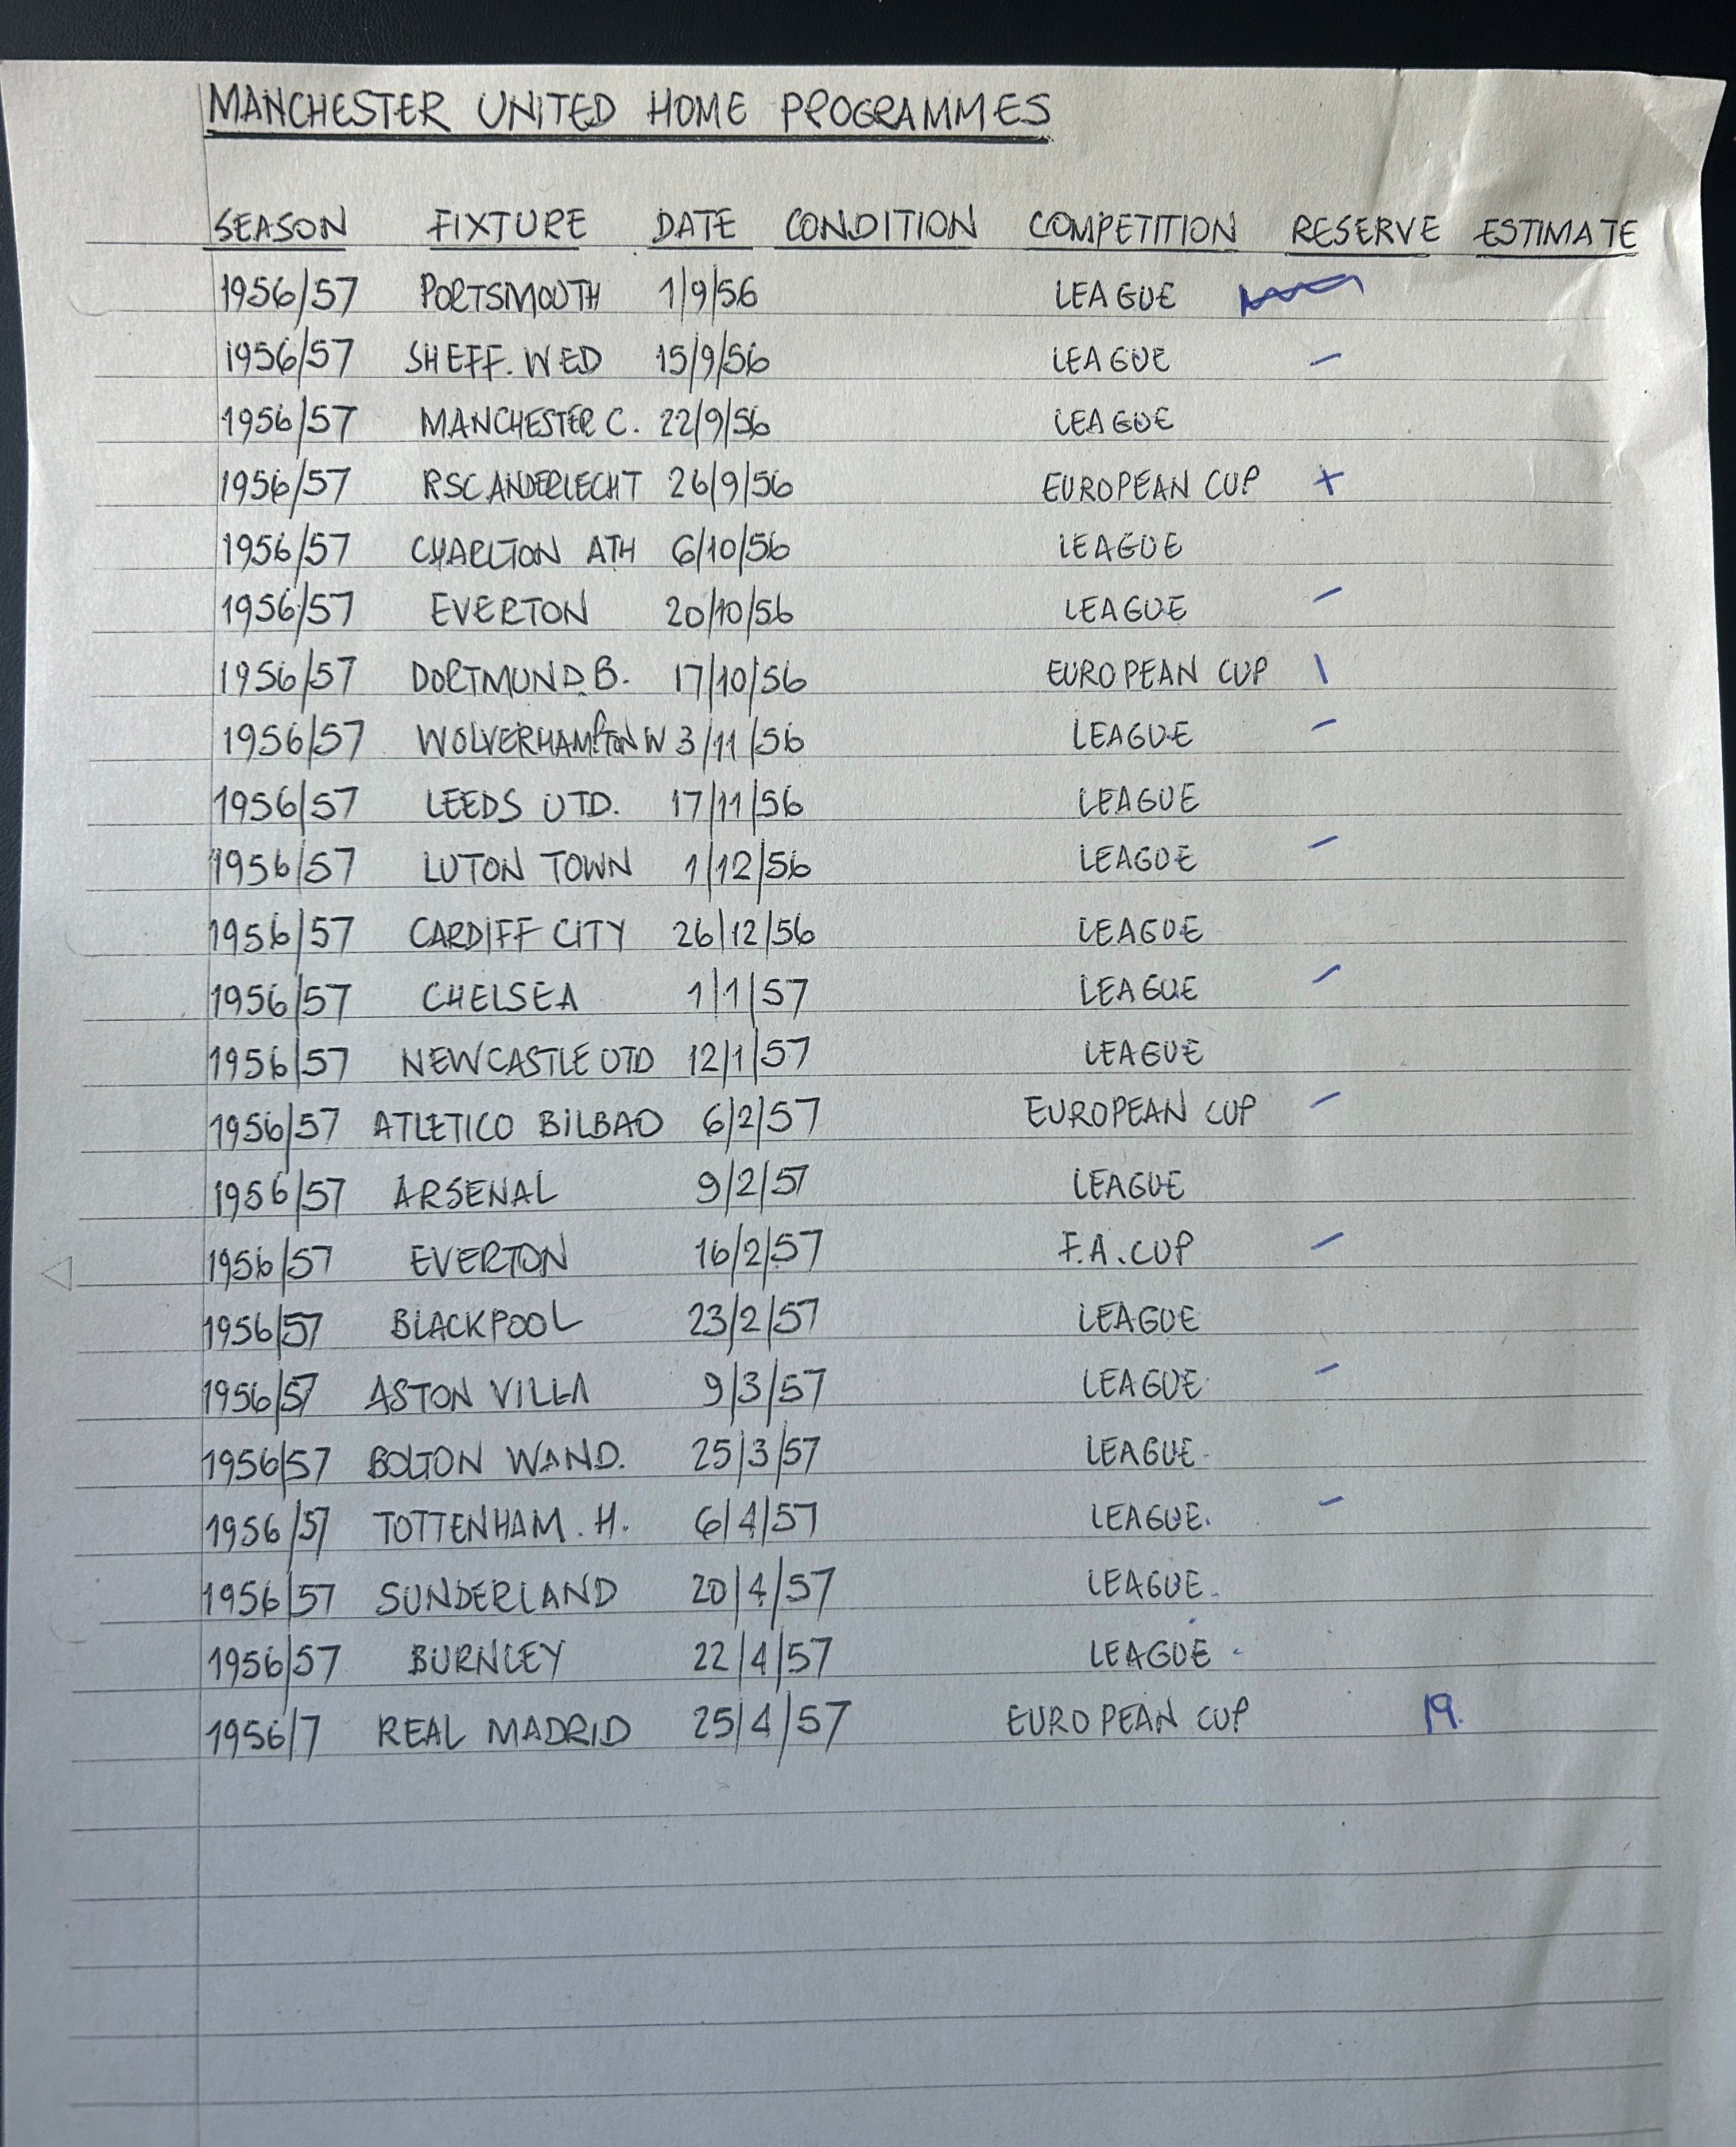 MANCHESTER UNITED HOME PROGRAMMES
SEASON FIXTURE DATE CONDITION COMPETITION RESERVE ESTIMATE
1956/57 PORTSMOUTH 1/9/56 LEAGUE
1956/57 SHEFF. WED 15/9/56 LEAGUE –
1956/57 MANCHESTER C. 22/9/56 LEAGUE
1956/57 RSC ANDERLECHT 26/9/56 EUROPEAN CUP +
1956/57 CHARLTON ATH 6/10/56 LEAGUE
1956/57 EVERTON 20/10/56 LEAGUE –
1956/57 DORTMUND B. 17/10/56 EUROPEAN CUP \
1956/57 WOLVERHAMPTON W 3/11/56 LEAGUE –
1956/57 LEEDS UTD. 17/11/56 LEAGUE
1956/57 LUTON TOWN 1/12/56 LEAGUE –
1956/57 CARDIFF CITY 26/12/56 LEAGUE
1956/57 CHELSEA 1/1/57 LEAGUE –
1956/57 NEWCASTLE UTD 12/1/57 LEAGUE
1956/57 ATLETICO BILBAO 6/2/57 EUROPEAN CUP –
1956/57 ARSENAL 9/2/57 LEAGUE
1956/57 EVERTON 16/2/57 F.A. CUP –
1956/57 BLACKPOOL 23/2/57 LEAGUE
1956/57 ASTON VILLA 9/3/57 LEAGUE –
1956/57 BOLTON WAND. 25/3/57 LEAGUE
1956/57 TOTTENHAM. H. 6/4/57 LEAGUE. –
1956/57 SUNDERLAND 20/4/57 LEAGUE
1956/57 BURNLEY 22/4/57 LEAGUE
1956/7 REAL MADRID 25/4/57 EUROPEAN CUP 19.